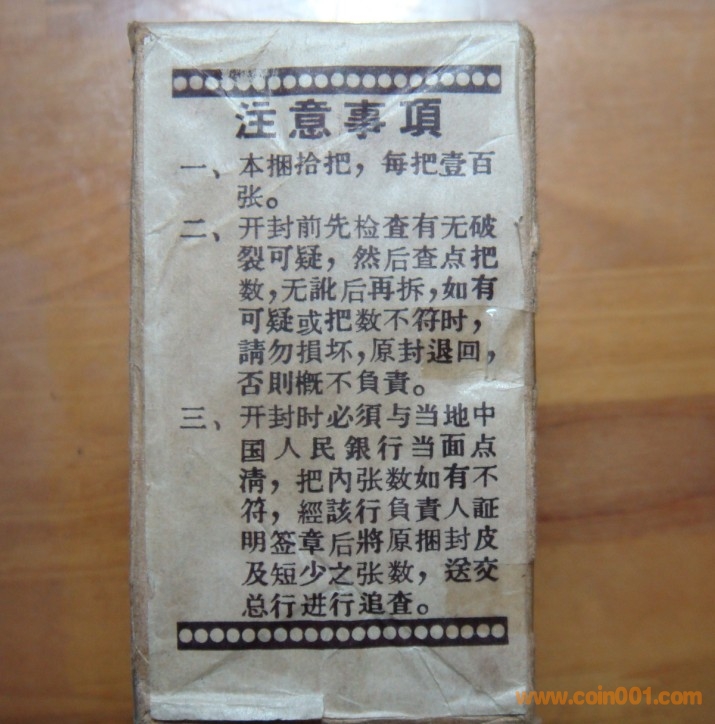 注意事項
一、本捆拾把，每把壹百
张。
二、开封前先检查有无破
裂可疑，然后查点把
数，无訛后再拆，如有
可疑或把数不符时，
請勿損坏，原封退回，
否則概不負責。
三、开封时必須与当地中
国人民銀行当面点
清，把內张数如有不
符，經該行負責人証
明签章后將原捆封皮
及短少之张数，送交
总行进行追査。
www.coin001.com